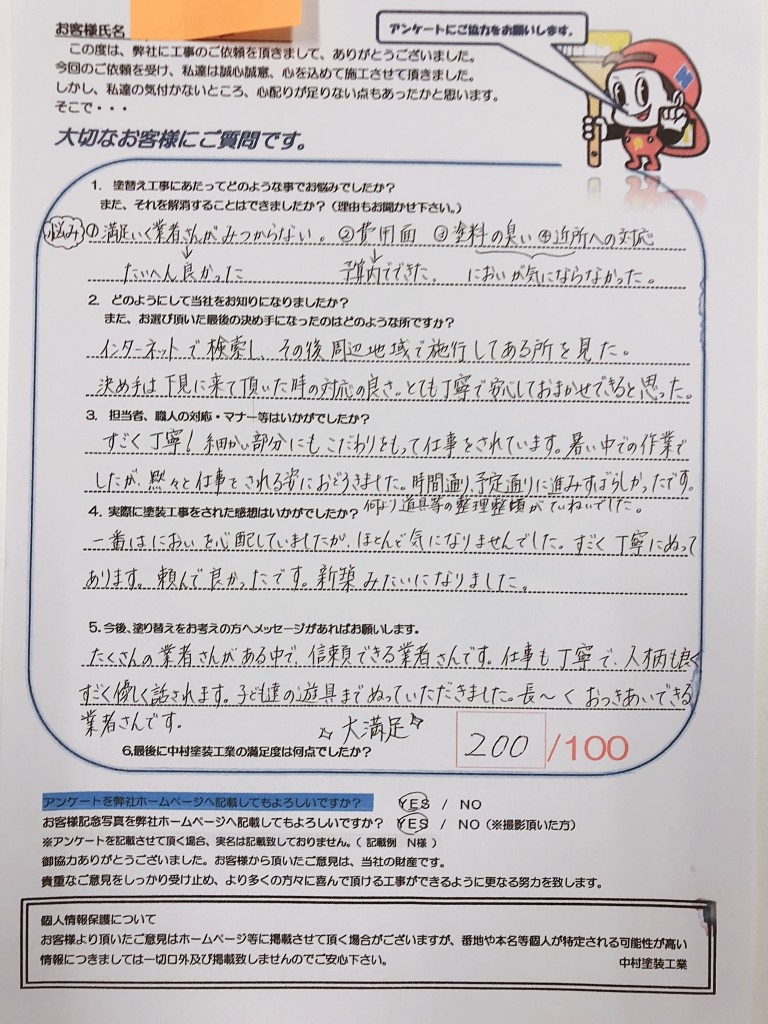 お客様氏名
アンケートにご協力をお願いします。
この度は、弊社に工事のご依頼を頂きまして、ありがとうございました。
今回のご依頼を受け、私達は誠心誠意、心を込めて施工させて頂きました。
しかし、私達の気付かないところ、心配りが足りない点もあったかと思います。
そこで・・・
大切なお客様にご質問です。
1. 塗替え工事にあたってどのような事でお悩みでしたか？
また、それを解消することはできましたか？（理由もお聞かせ下さい。）
悩み ①満足いく業者さんがみつからない。②費用面 ③塗料の臭い ④近所への対応
たいへん良かった 予算内でできた。 においが気にならなかった。
2. どのようにして当社をお知りになりましたか？
また、お選び頂いた最後の決め手になったのはどのような所ですか？
インターネットで検索し、その後周辺地域で施行してある所を見た。
決め手は下見に来て頂いた時の対応の良さ。とても丁寧で安心しておまかせできると思った。
3. 担当者、職人の対応・マナー等はいかがでしたか？
すごく丁寧！細かい部分にもこだわりをもって仕事をされています。暑い中での作業で
したが、黙々と仕事をされる姿におどろきました。時間通り、予定通りに進みすばらしかったです。
何より道具等の整理整頓がていねいでした。
4. 実際に塗装工事をされた感想はいかがでしたか？
一番はにおいを心配していましたが、ほとんど気になりませんでした。すごく丁寧にぬって
あります。頼んで良かったです。新築みたいになりました。
5. 今後、塗り替えをお考えの方へメッセージがあればお願いします。
たくさんの業者さんがある中で、信頼できる業者さんです。仕事も丁寧で、人柄も良く
すごく優しく話されます。子ども達の遊具までぬっていただきました。長〜くおつきあいできる
業者さんです。
☆大満足☆
6.最後に中村塗装工業の満足度は何点でしたか？
200 /100
アンケートを弊社ホームページへ記載してもよろしいですか？ YES / NO
お客様記念写真を弊社ホームページへ記載してもよろしいですか？ YES / NO（※撮影頂いた方）
※アンケートを記載させて頂く場合、実名は記載致しておりません。（ 記載例 N様 ）
御協力ありがとうございました。お客様から頂いたご意見は、当社の財産です。
貴重なご意見をしっかり受け止め、より多くの方々に喜んで頂ける工事ができるように更なる努力を致します。
個人情報保護について
お客様より頂いたご意見はホームページ等に掲載させて頂く場合がございますが、番地や本名等個人が特定される可能性が高い
情報につきましては一切口外及び掲載致しませんのでご安心下さい。
中村塗装工業